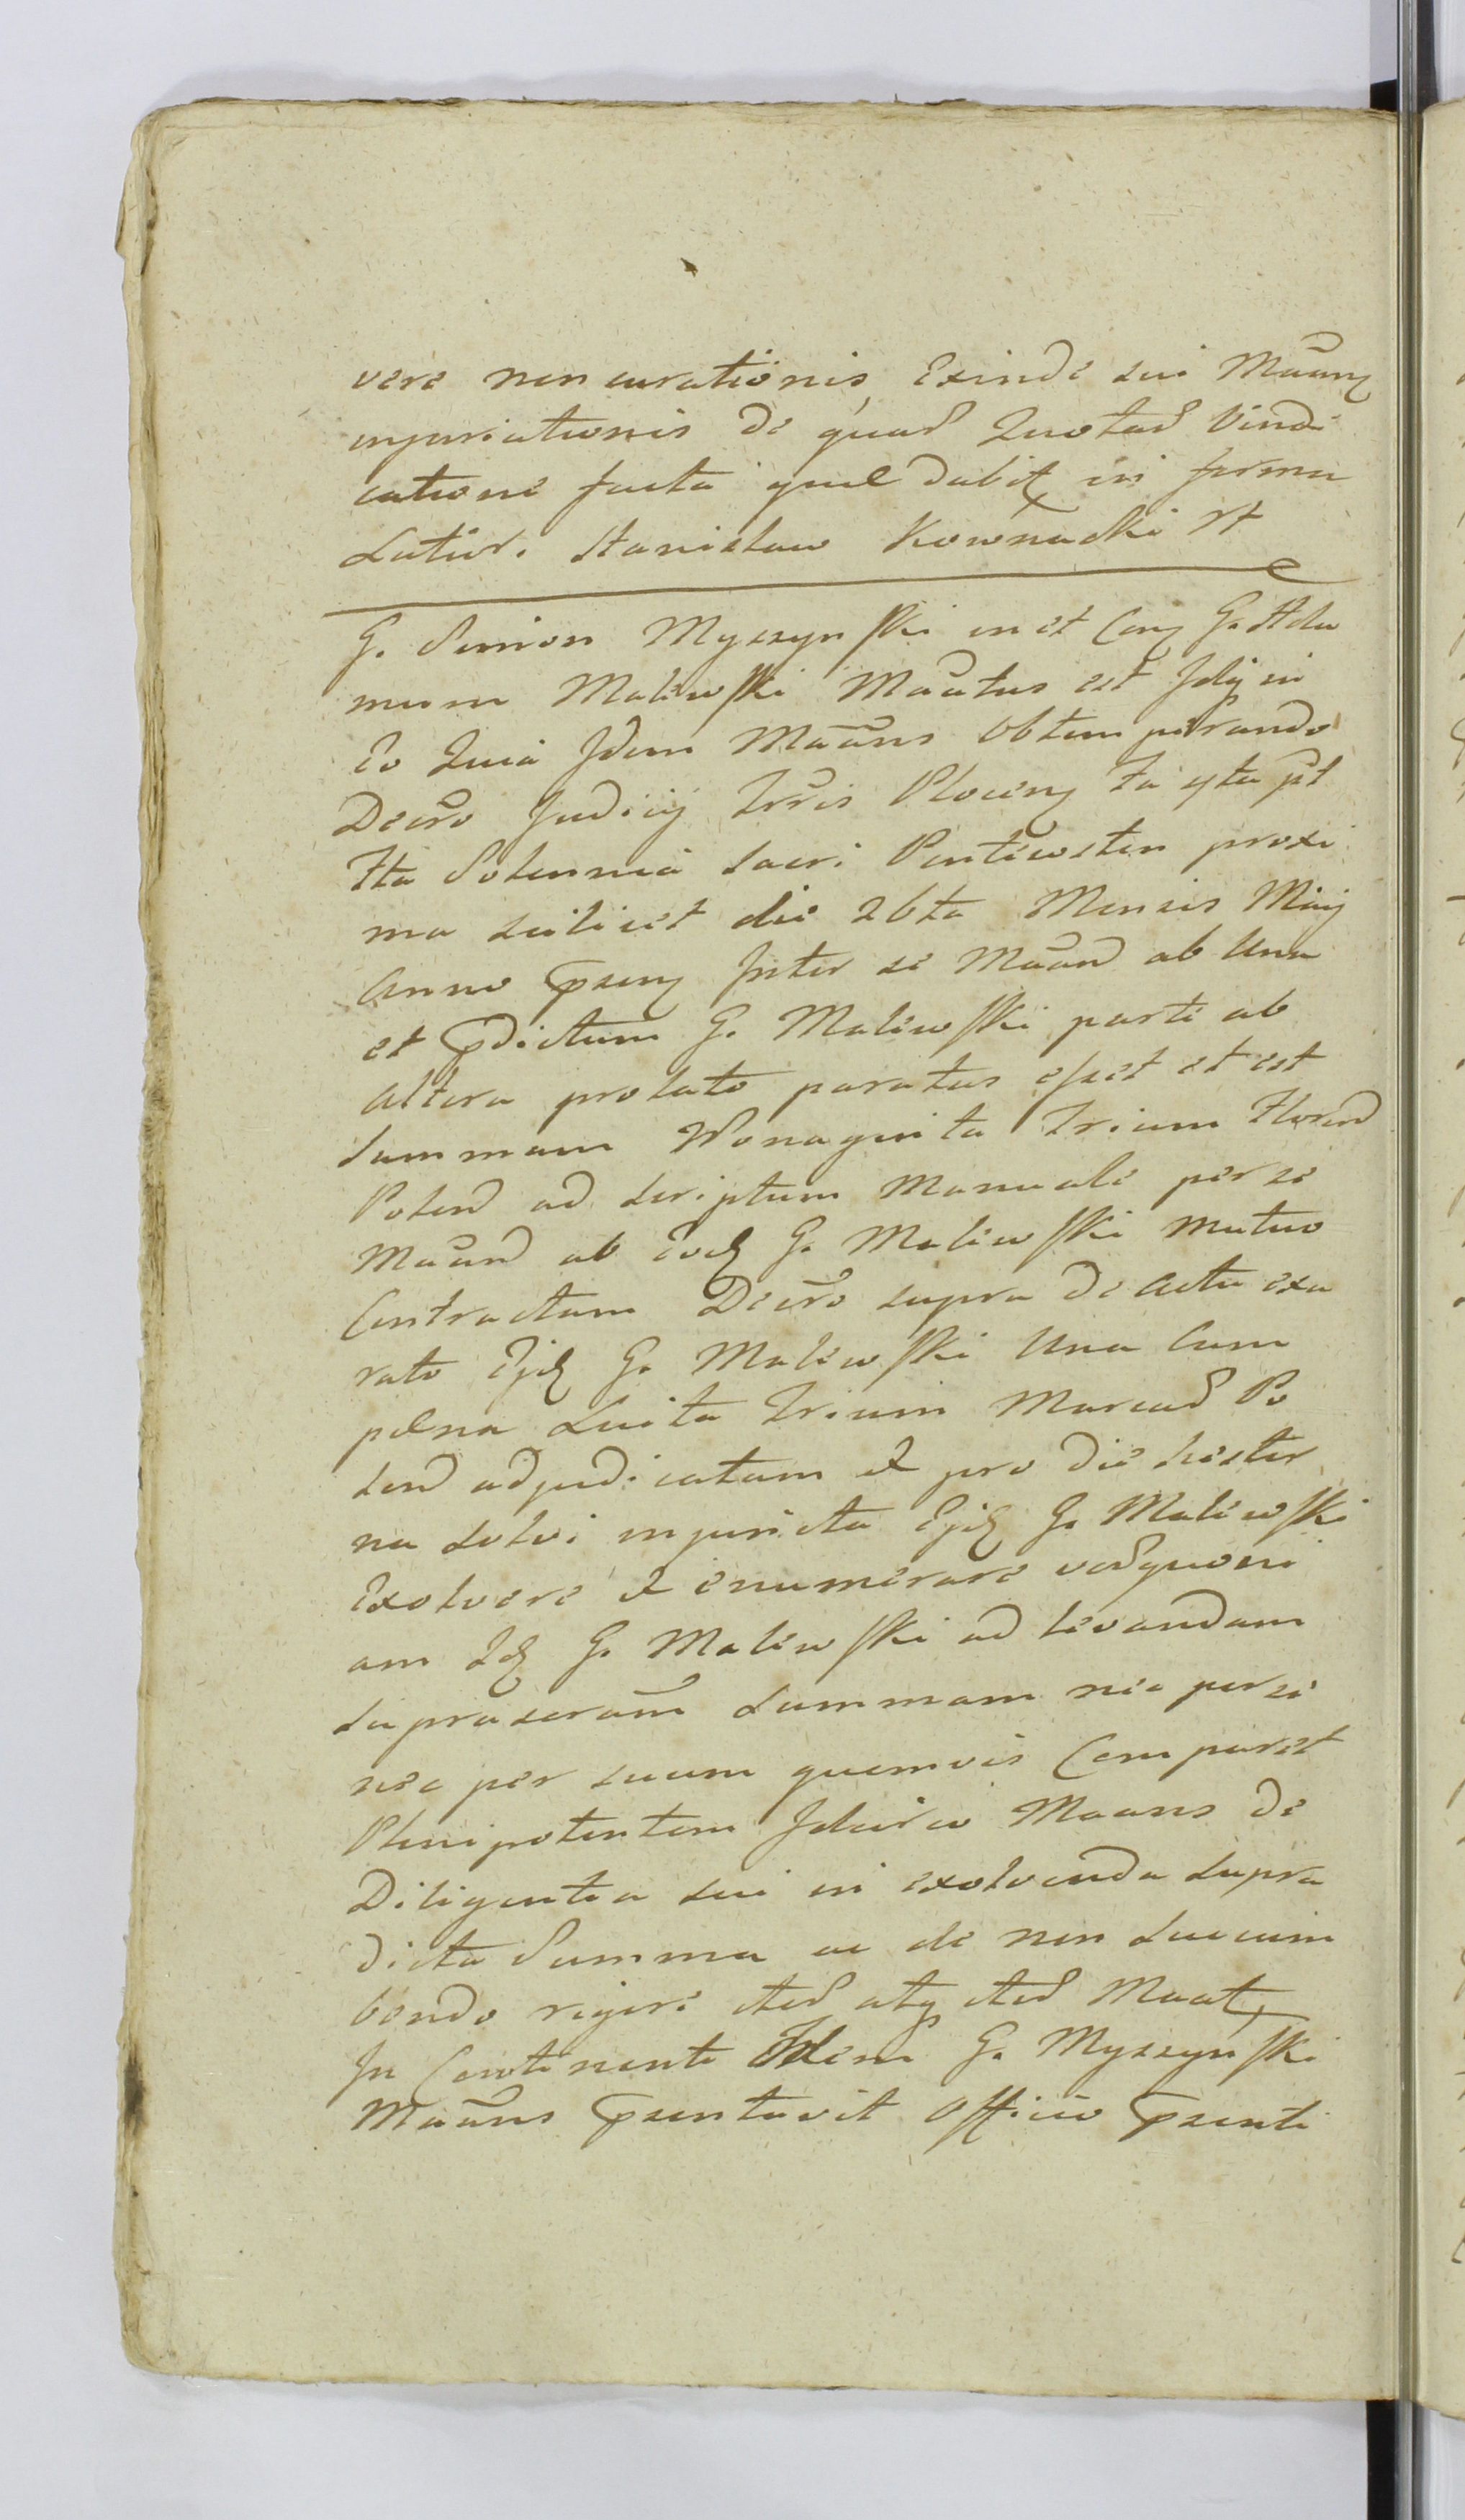 vere non curationis, Exinde sui Maãnꝫ
injuriationis de quad̃ Quotad̃ Vindi
catione facta que dabit in forma
Latiori. Stanisław Kownacki
G. Simon Myszynski in et Conꝫ G. Ada
mum Malewski Maãtus est Idqꝫ in
Eo Quia Idem Maãns Obtemperando
Decr̃o Judicij Tr̃ris Plocenꝫ
Solennia Sacri Pentecosten proxi
ma scilicet die 26ta Mensis Maij
Anno p̃senꝫ Inter se Maãnd̃ ab Una
et p̃dictum G. Malewski parte ab
Altera prolato paratus esset et est
Summam Nonaginta Trium Floren̄
Polon̄ ad Scriptum Manuale per se
Maãnd̃ ab Eodꝫ G. Malewski mutuo
Contractam Decr̃o supra de Actu exa
rato Ejdꝫ G. Malewski Una Cum
pœna Luita Trium Marcad̃ Po
lon̄ adjudicatam et pro die hester
na Solvi injuncta Ejdꝫ G. Malewski
Exolvere et enumerare vedquoni
am Idꝫ G. Malewski ad levandam
supraseram̃ Summam nec per se
nec per suum quemvis Comparet
Plenipotentem Idcirco Maans de
Diligentia sui in exolvenda supra
dicta Summa ac de non succum
bendo rigori ited̃ atqꝫ ited̃ Maat,
In Continenti Idem G. Myszynski
Maãns p̃sentavit Officio p̃senti